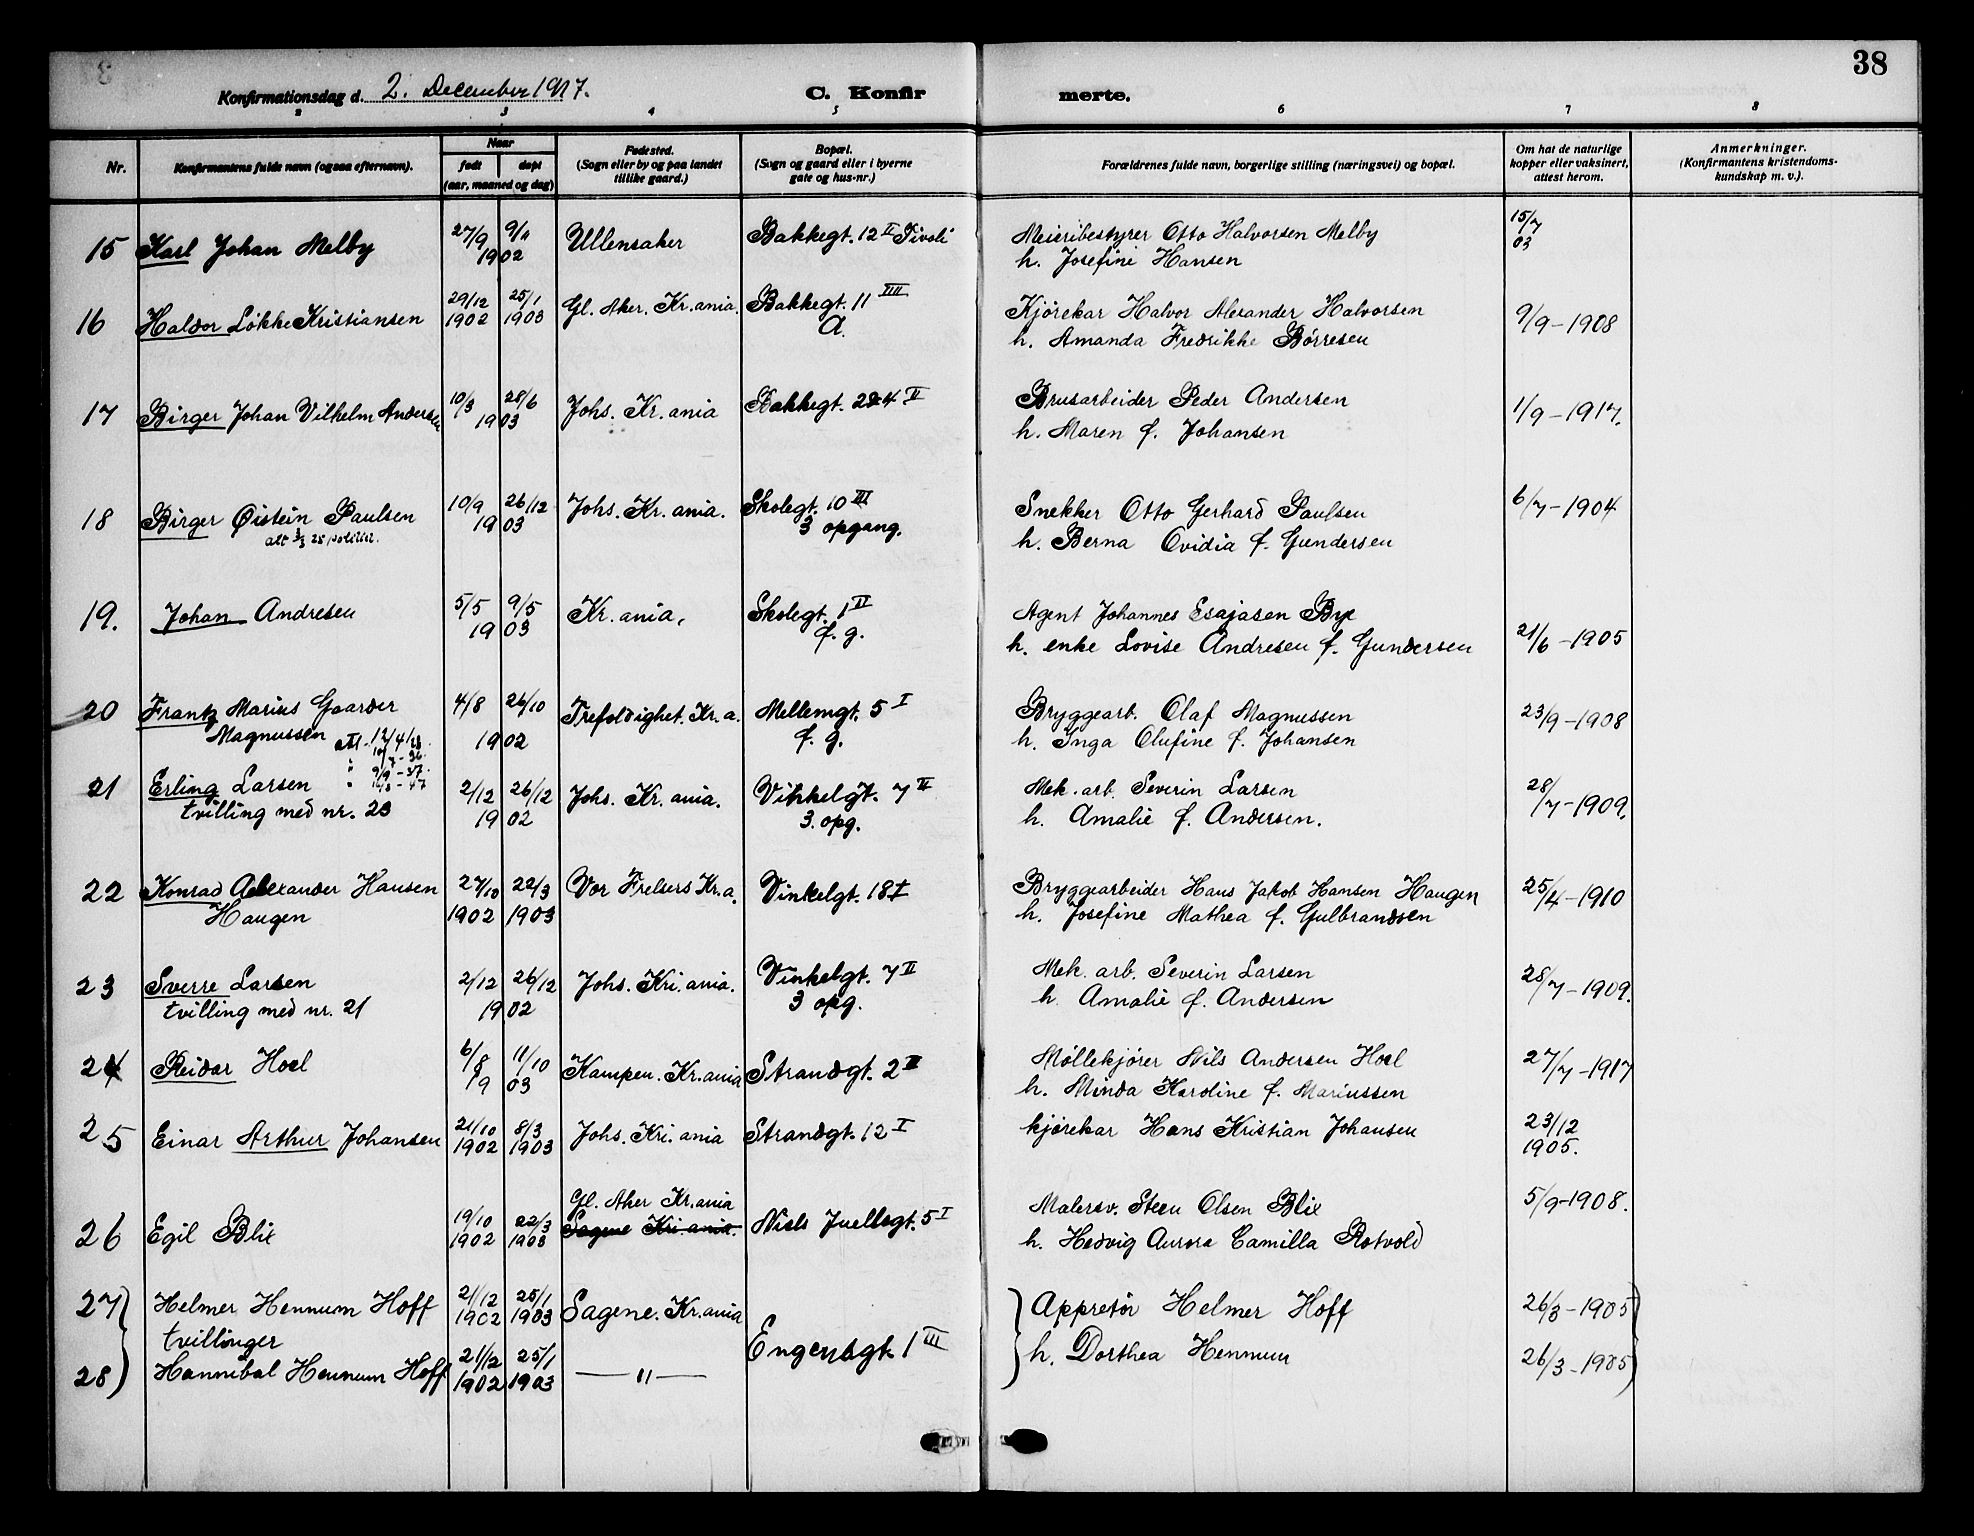 38
Konfirmationsdag d. 2. December 1917. C. Konfirmerte.
2 3 4 5 6 7 8
Nr. Konfirmantens fulde navn (ogsaa efternavn). Naar født døpt (aar, maaned og dag) Fødested. (Sogn eller by og paa landet tillike gaard.) Bopæl. (Sogn og gaard eller i byerne gate og hus-nr.) Forældrenes fulde navn, borgerlige stilling (næringsvei) og bopæl. Om hat de naturlige kopper eller vaksinert, attest herom. Anmerkninger. (Konfirmantens kristendoms-kundskap m. v.).
15 Karl Johan Melby 27/9 9/11 1902 Ullensaker Bakkegt. 12 II Tivoli Meieribestyrer Otto Halvorsen Melby 15/7 03
h. Josefine Hansen
16 Haldor Løkke Kristiansen 29/12 1902 25/1 1903 Gl. Aker. Kr.ania. Bakkegt. 11 IIII A. Kjørekar Halvor Alexander Halvorsen 9/9-1908
h. Amanda Fredrikke Børresen
17 Birger Johan Vilhelm Andersen 10/3 28/6 1903 Johs. Kr.ania Bakkegt. 24 II Brusarbeider Peder Andersen 1/9-1917.
h. Maren f. Johansen
18 Birger Øistein Paulsen 10/9 26/12 1903 Johs. Kr.ania. Skolegt. 10 III Snekker Otto Gerhard Paulsen 6/7-1904
3 opgang. h. Berna Ovidia f. Gundersen
19. Johan Andresen 5/5 9/5 1903 Kr.ania. Skolegt. 1 II Agent Johannes Esajasen Bye
f. g. h. enke Lovise Andresen f. Gundersen 21/6-1905
20 Frantz Marius Gaarder 4/8 26/10 1902 Trefoldighet. Kr.a. Mellemgt. 5 I Bryggearb. Olaf Magnussen 23/9-1908
Magnussen f. g. h. Inga Olufine f. Johansen
21 Erling Larsen 2/12 26/12 1902 Johs. Kr.ania. Vinkelgt. 7 II Mek. arb. Severin Larsen 28/7-1909.
tvilling med nr. 23 3. opg. h. Amalie f. Andersen.
22 Konrad Alexander Hansen 27/10 1902 22/3 1903 Vor Frelsers Kr.a. Vinkelgt. 18 I Bryggearbeider Hans Jakob Hansen Haugen 25/4-1910
Haugen h. Josefine Mathea f. Gulbrandsen
23 Sverre Larsen 2/12 26/12 1902 Johs. Kri.ania. Vinkelgt. 7 II Mek. arb. Severin Larsen 28/7-1909.
tvilling med nr. 21 3 opg. h. Amalie f. Andersen
24 Reidar Hoel 6/8 11/10 1903 Kampen. Kr.ania Strandgt. 2 II Møllekjører Nils Andersen Hoel 27/7-1917
h. Minda Karoline f. Mariussen
25 Einar Arthur Johansen 21/10 1902 8/3 1903 Johs. Kri.ania Strandgt. 12 I kjørekar Hans Kristian Johansen 23/12 1905.
Gl. Aker Kr.ania
26 Egil Blix 19/10 1902 22/3 1903 Sagene Kri.ania. Niels Juellsgt. 5 I Malersv. Steen Olsen Blix 5/9-1908.
h. Hedvig Aurora Camilla Rotvold
27 Helmer Hennum Hoff 21/12 1902 25/1 1903 Sagene. Kr.ania Appretør Helmer Hoff 26/3-1905
tvillinger Engensgt. 1 III
28 Hannibal Hennum Hoff 21/12 1902 25/1 1903 — " — h. Dorthea Hennum 26/3-1905